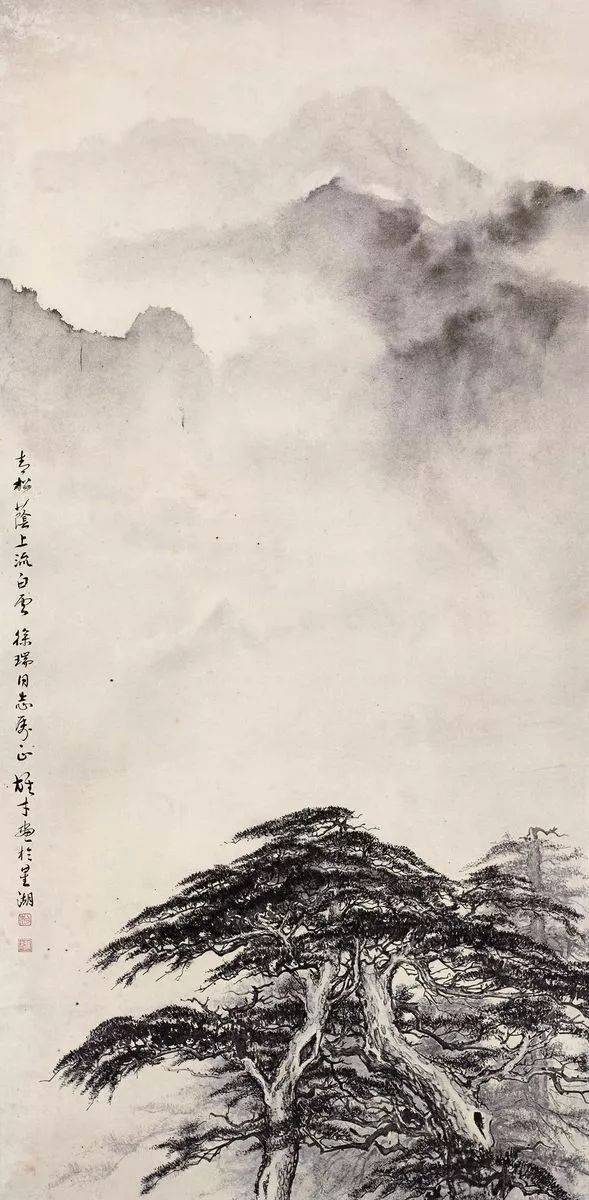 青松蔭上流白雲 徐瑞同志属正 雄才畫於星湖